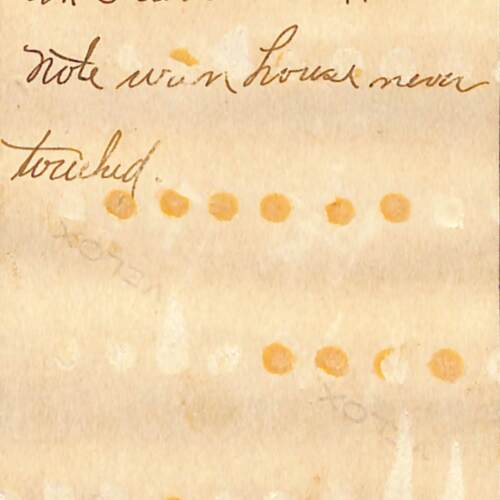 Note wan house never
touched.
VELOX
VELOX